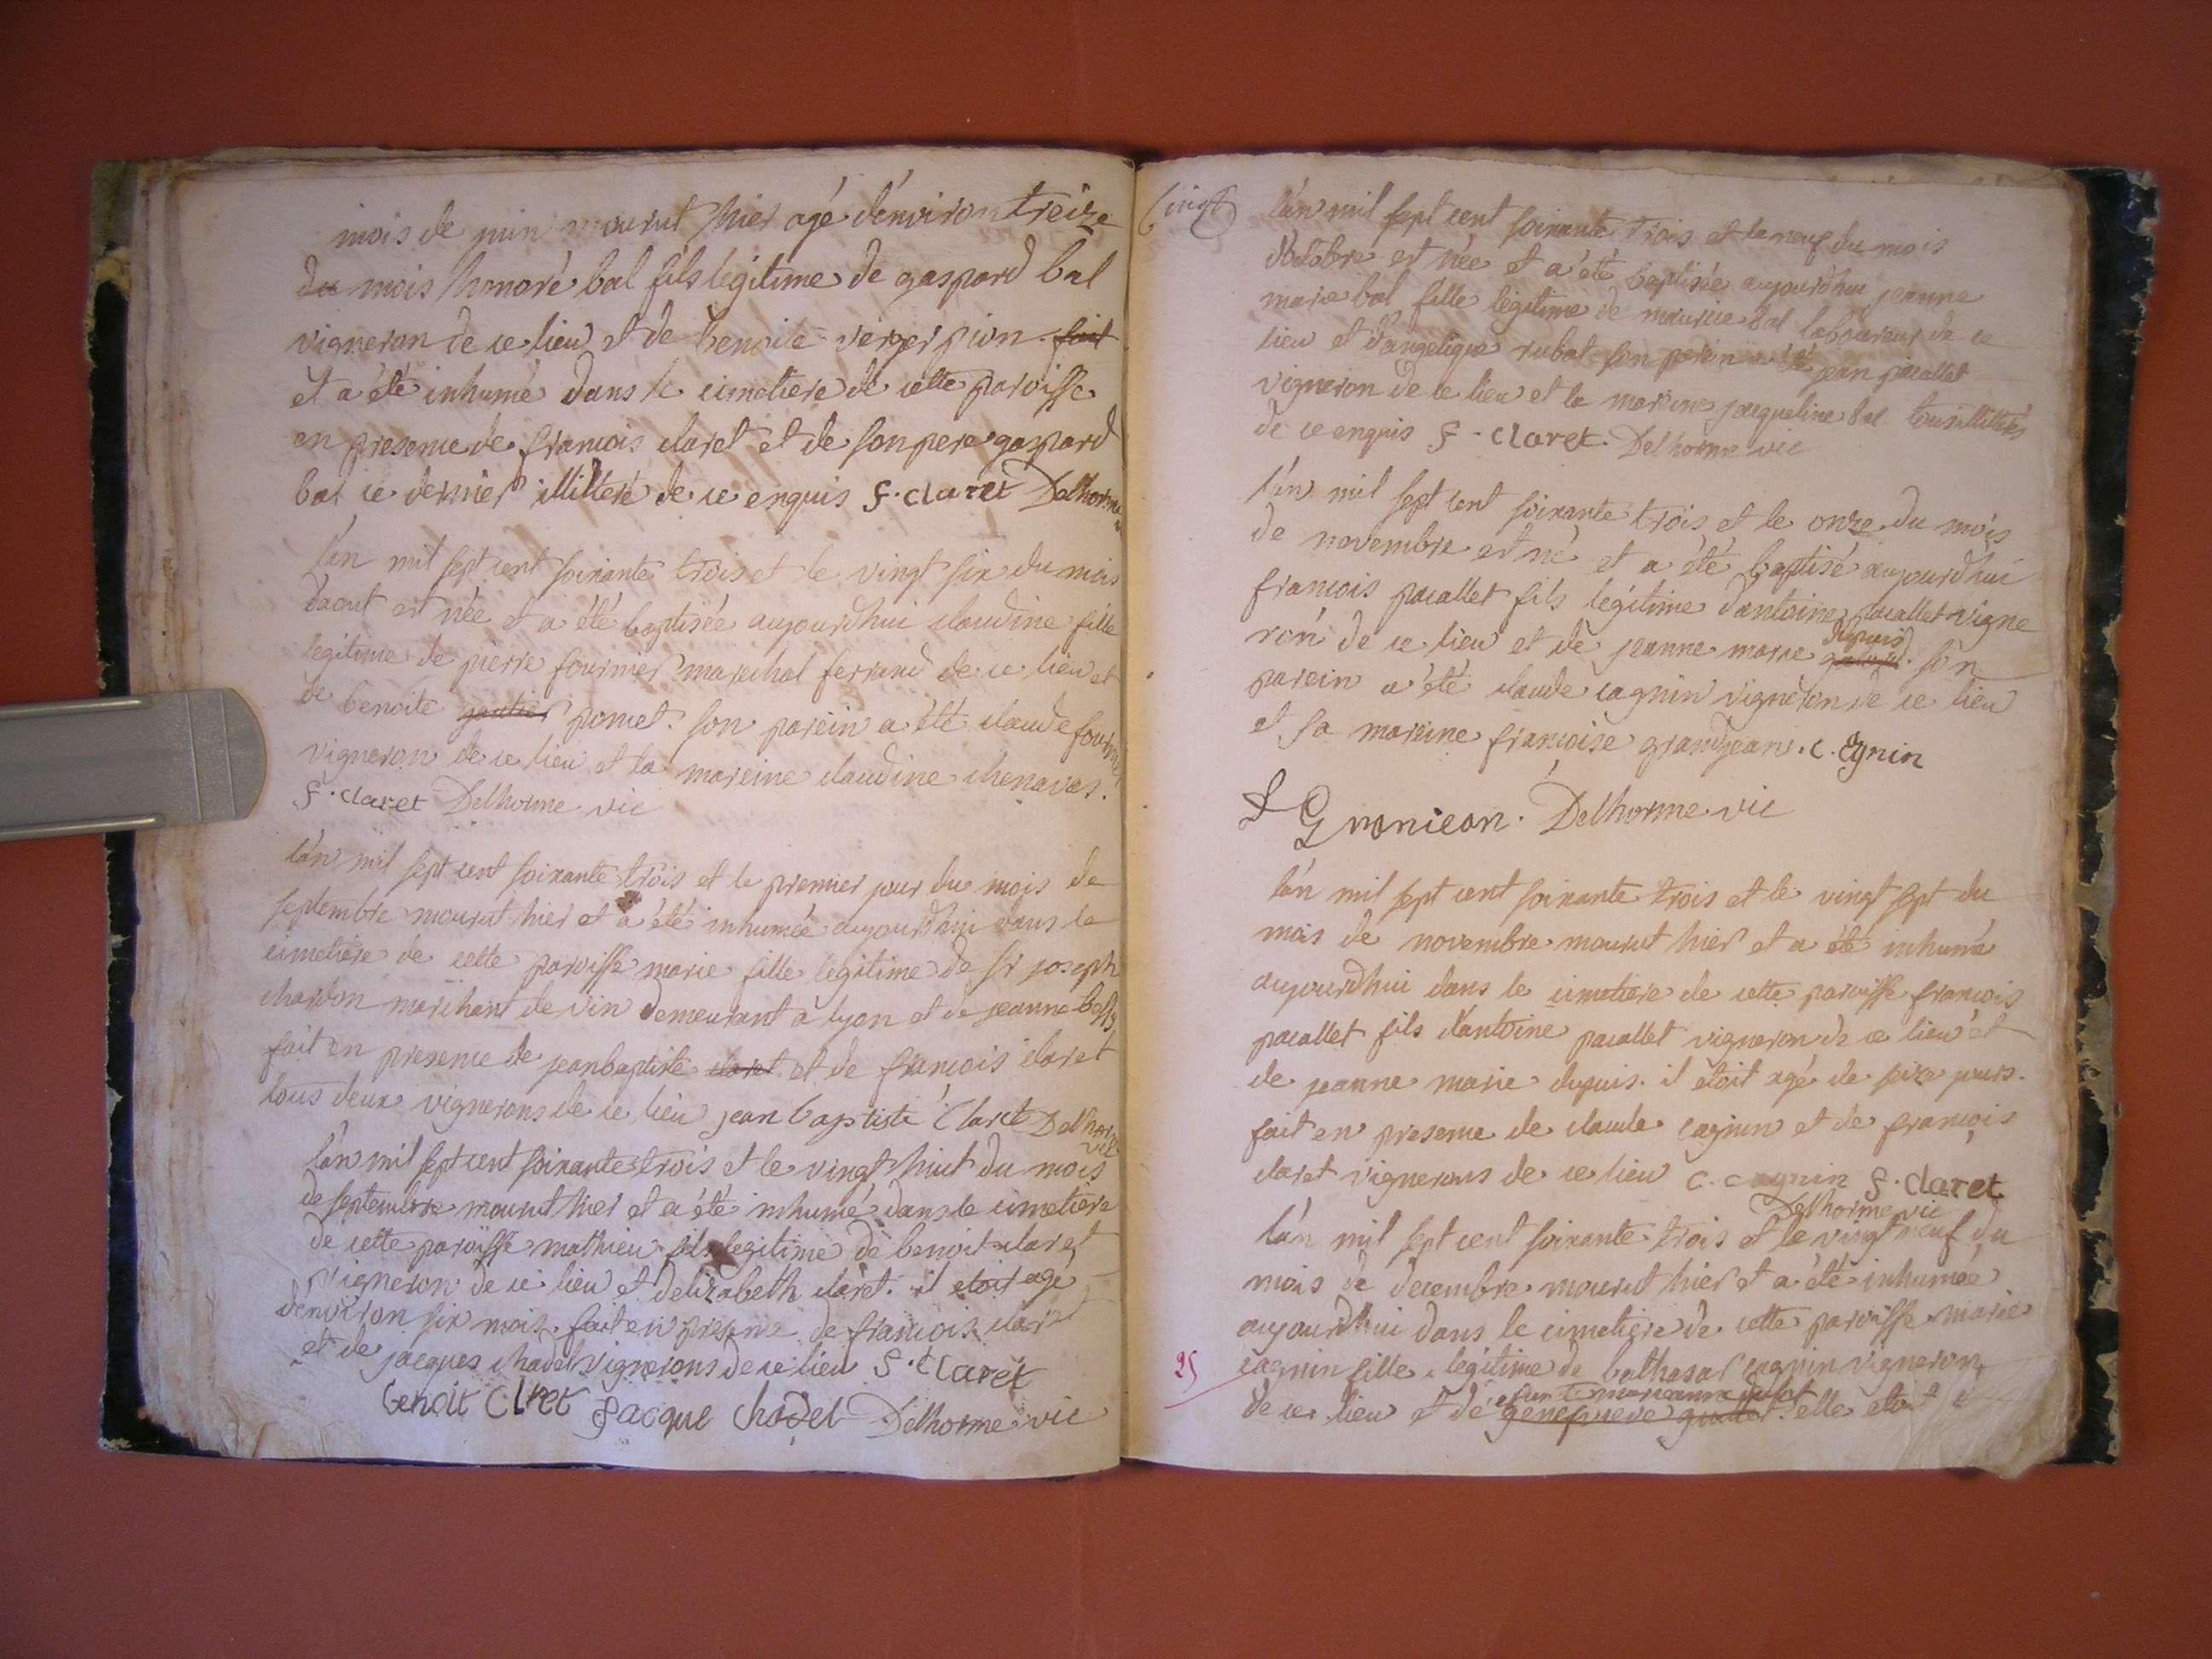 mois de juin mourut hier agé d'environ treize
du mois honoré bal fils légitime de gaspard bal
vigneron de ce lieu et de benoite verger pion. fait
et a été inhumé dans le cimetiere de cette paroisse
en presence de francois claret et de son pere gaspard
bal ce dernier illitteré de ce enquis F. claret Delhorme
l'an mil sept cent soixante trois et le vingt six du mois
daout est née et a été baptisée aujourdhui claudine fille
legitime de pierre fournier marechal ferrand de ce lieu et
de benoite gautier ponet. son parein a été claude fournier
vigneron de ce lieu et la mareine claudine chenavas.
F. claret Delhorme vic
l'an mil sept cent soixante trois et le premier jour du mois de
septembre mourut hier et a été inhumée aujourdhui dans le
cimetiere de cette paroisse marie fille legitime de sr joseph
chardon marchant de vin demeurant a lyon et de jeanne
fait en presence de jeanbaptiste claret et de francois claret
tous deux vignerons de ce lieu jean baptiste Claret Delhorme
vic
l'an mil sept cent soixante trois et le vingt huit du mois
de septembre mourut hier et a été inhumé dans le cimetiere
de cette paroisse mathieu fils legitime de benoit claret
vigneron de ce lieu et delizabeth claret. il etoit agé
d'environ six mois. fait en presence de francois claret
et de jacques chadel vignerons de ce lieu F. Claret
benoit Clret Jacque chadel Delhorme vic
vingt
l'an mil sept cent soixante trois et le neuf du mois
d'octobre est née et a été baptisée aujourdhui jeanne
marie bal fille légitime de maurice bal laboureur de ce
lieu et d'angelique rubat son parein a été jean pacallet
vigneron de ce lieu et la mareine jacqueline bal tous illitterés
de ce enquis F. claret. Delhorme vic
l'an mil sept cent soixante trois et le onze du mois
de novembre est né et a été baptisé aujourdhui
francois pacallet fils légitime dantoine pacallet vigne
ron de ce lieu et de jeanne marie dupuis son
parein a été claude cagnin vigneron de ce lieu
et sa mareine francoise grandjean. c. Cgnin
F Graniean. Delhorme vic
l'an mil sept cent soixante trois et le vingt sept du
mois de novembre mourut hier et a été inhumé
aujourdhui dans le cimetiere de cette paroisse francois
pacallet fils d'antoine pacallet vigneron de ce lieu et
de jeanne marie dupuis. il étoit agé de seize jours.
fait en presence de claude cagnin et de francois
claret vignerons de ce lieu C. cagnin F. claret
Delhorme vic
l'an mil sept cent soixante trois et le vingt neuf du
mois de decembre mourut hier et a été inhumée
aujourdhui dans le cimetiere de cette paroisse marie
25 cagnin fille légitime de balthasar cagnin vigneron
de ce lieu et de genevieve elle etoit